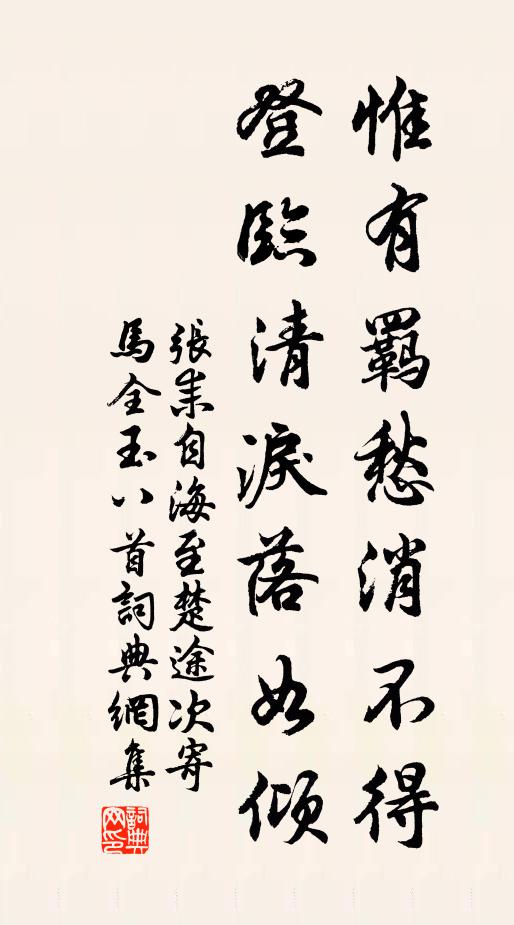 惟有羈愁消不得
登臨清淚落如傾
張耒自海至楚途次寄
馬全玉八首詞典網集
詞典網印